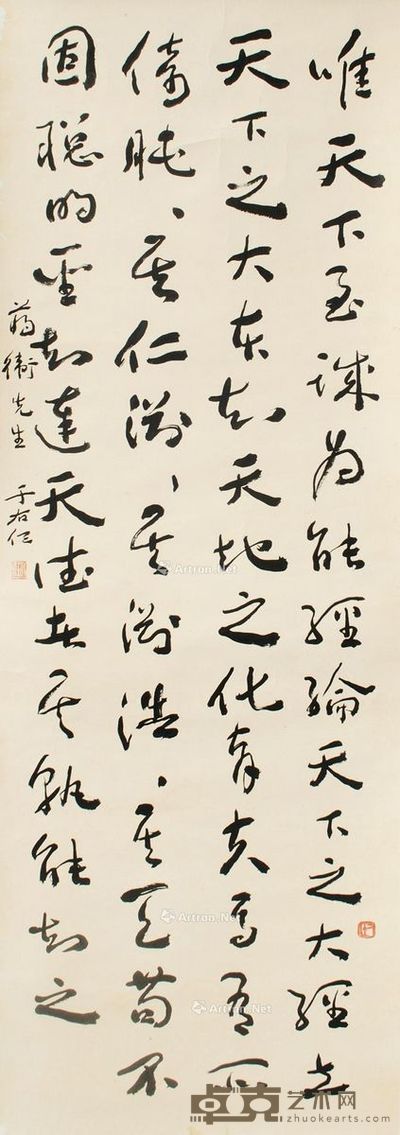 唯天下至誠為能經綸天下之大經立
天下之大本知天地之化育夫焉有所
倚肫、其仁淵、其淵浩、其天苟不
固聰明聖知達天德者其孰能知之
衛先生
于右任
Artron.Net
Artron.Net
Artron.Net
Artron.Net
卓克艺术网
zhuokearts.com